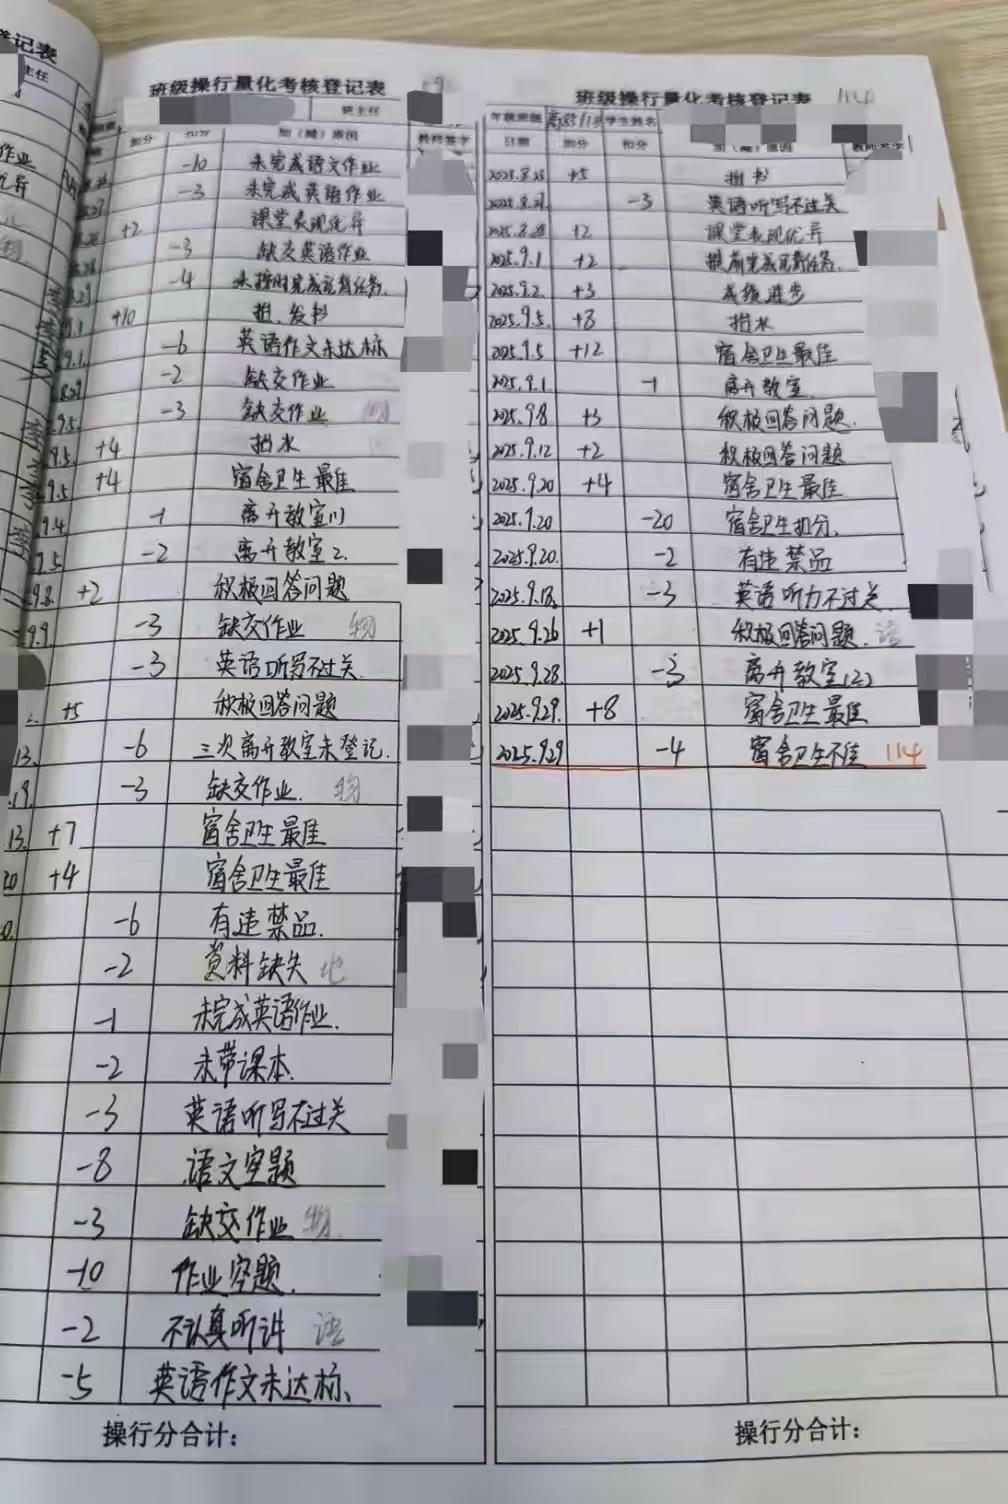 登记表
主任
作业
优异
班级操行量化考核登记表
班主任
加分 扣分 加（减）原因 教师签字
-10 未完成语文作业
-3 未完成英语作业
+2 课堂表现优异
-3 缺交英语作业
-4 未按时完成背任务
+10 担、发书
-6 英语作文未达标
-2 缺交作业
-3 缺交作业
9.5. +4 担水
9.5 +4 宿舍卫生最佳
9.4. -1 离开教室
9.5. -2 离开教室2.
9.8. +2 积极回答问题
9.9. -3 缺交作业 物
-3 英语听写不过关.
+5 积极回答问题
13. -6 三次离开教室未登记.
19. -3 缺交作业. 物
13. +7 宿舍卫生最佳
20 +4 宿舍卫生最佳
-6 有违禁品.
-2 资料缺失 地
-1 未完成英语作业.
-2 未带课本.
-3 英语听写不过关
-8 语文空题
-3 缺交作业 物
-10 作业空题.
-2 不认真听讲 语
-5 英语作文未达标、
操行分合计:
班级操行量化考核登记表 114
年级班级 学生姓名
日期 加分 扣分 加（减）原因 教师签字
2025.8.25 +5 担书
-3 英语听写不过关
2025.8.28 +2 课堂表现优异
2025.9.1 +2 提前完成背任务.
2025.9.2. +3 成绩进步
2025.9.5. +8 担水
2025.9.5 +12 宿舍卫生最佳
2025.9.1. -1 离开教室.
2025.9.8 +3 积极回答问题.
2025.9.12 +2 积极回答问题
2025.9.20 +4 宿舍卫生最佳
2025.9.20 -20 宿舍卫生扣分.
2025.9.20. -2 有违禁品
2025.9.18. -3 英语听力不过关.
2025.9.26 +1 积极回答问题. 语
2025.9.28. -3 离开教室(2)
2025.9.29. +8 宿舍卫生最佳
2025.9.29 -4 宿舍卫生不佳 114
操行分合计: